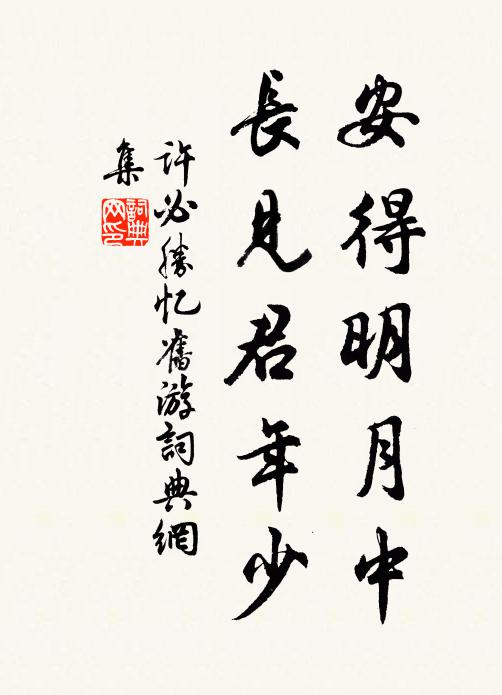 安得明月中
長見君年少
許必勝忆舊游詞典網
集
詞典
网印